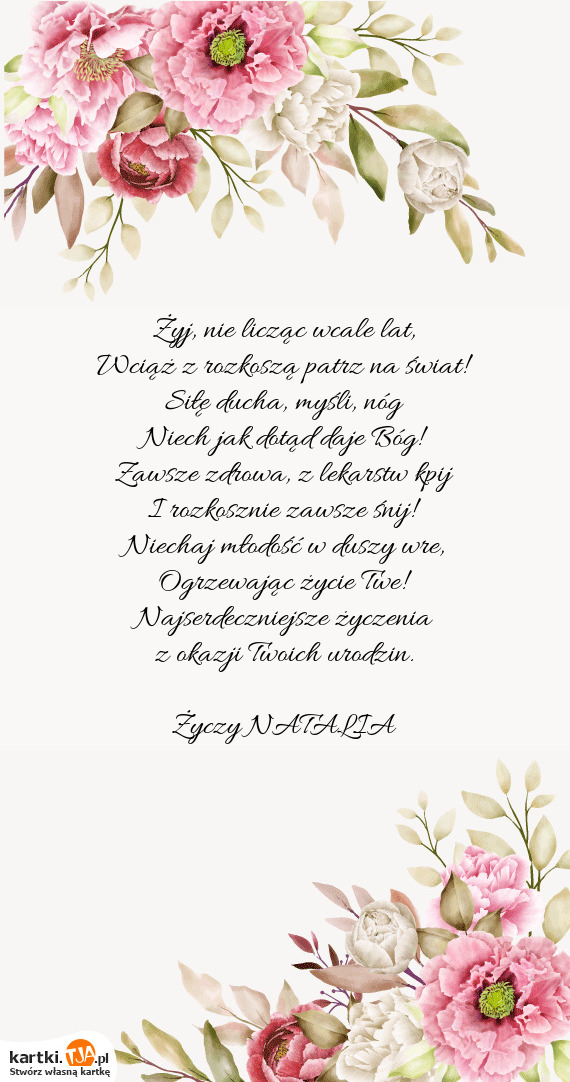 Żyj, nie licząc wcale lat,
Wciąż z rozkoszą patrz na świat!
Siłę ducha, myśli, nóg
Niech jak dotąd daje Bóg!
Zawsze zdrowa, z lekarstw kpij
I rozkosznie zawsze śnij!
Niechaj młodość w duszy wre,
Ogrzewając życie Twe!
Najserdeczniejsze życzenia
z okazji Twoich urodzin.
Życzy NATALIA
kartki.TJA.pl
Stwórz własną kartkę